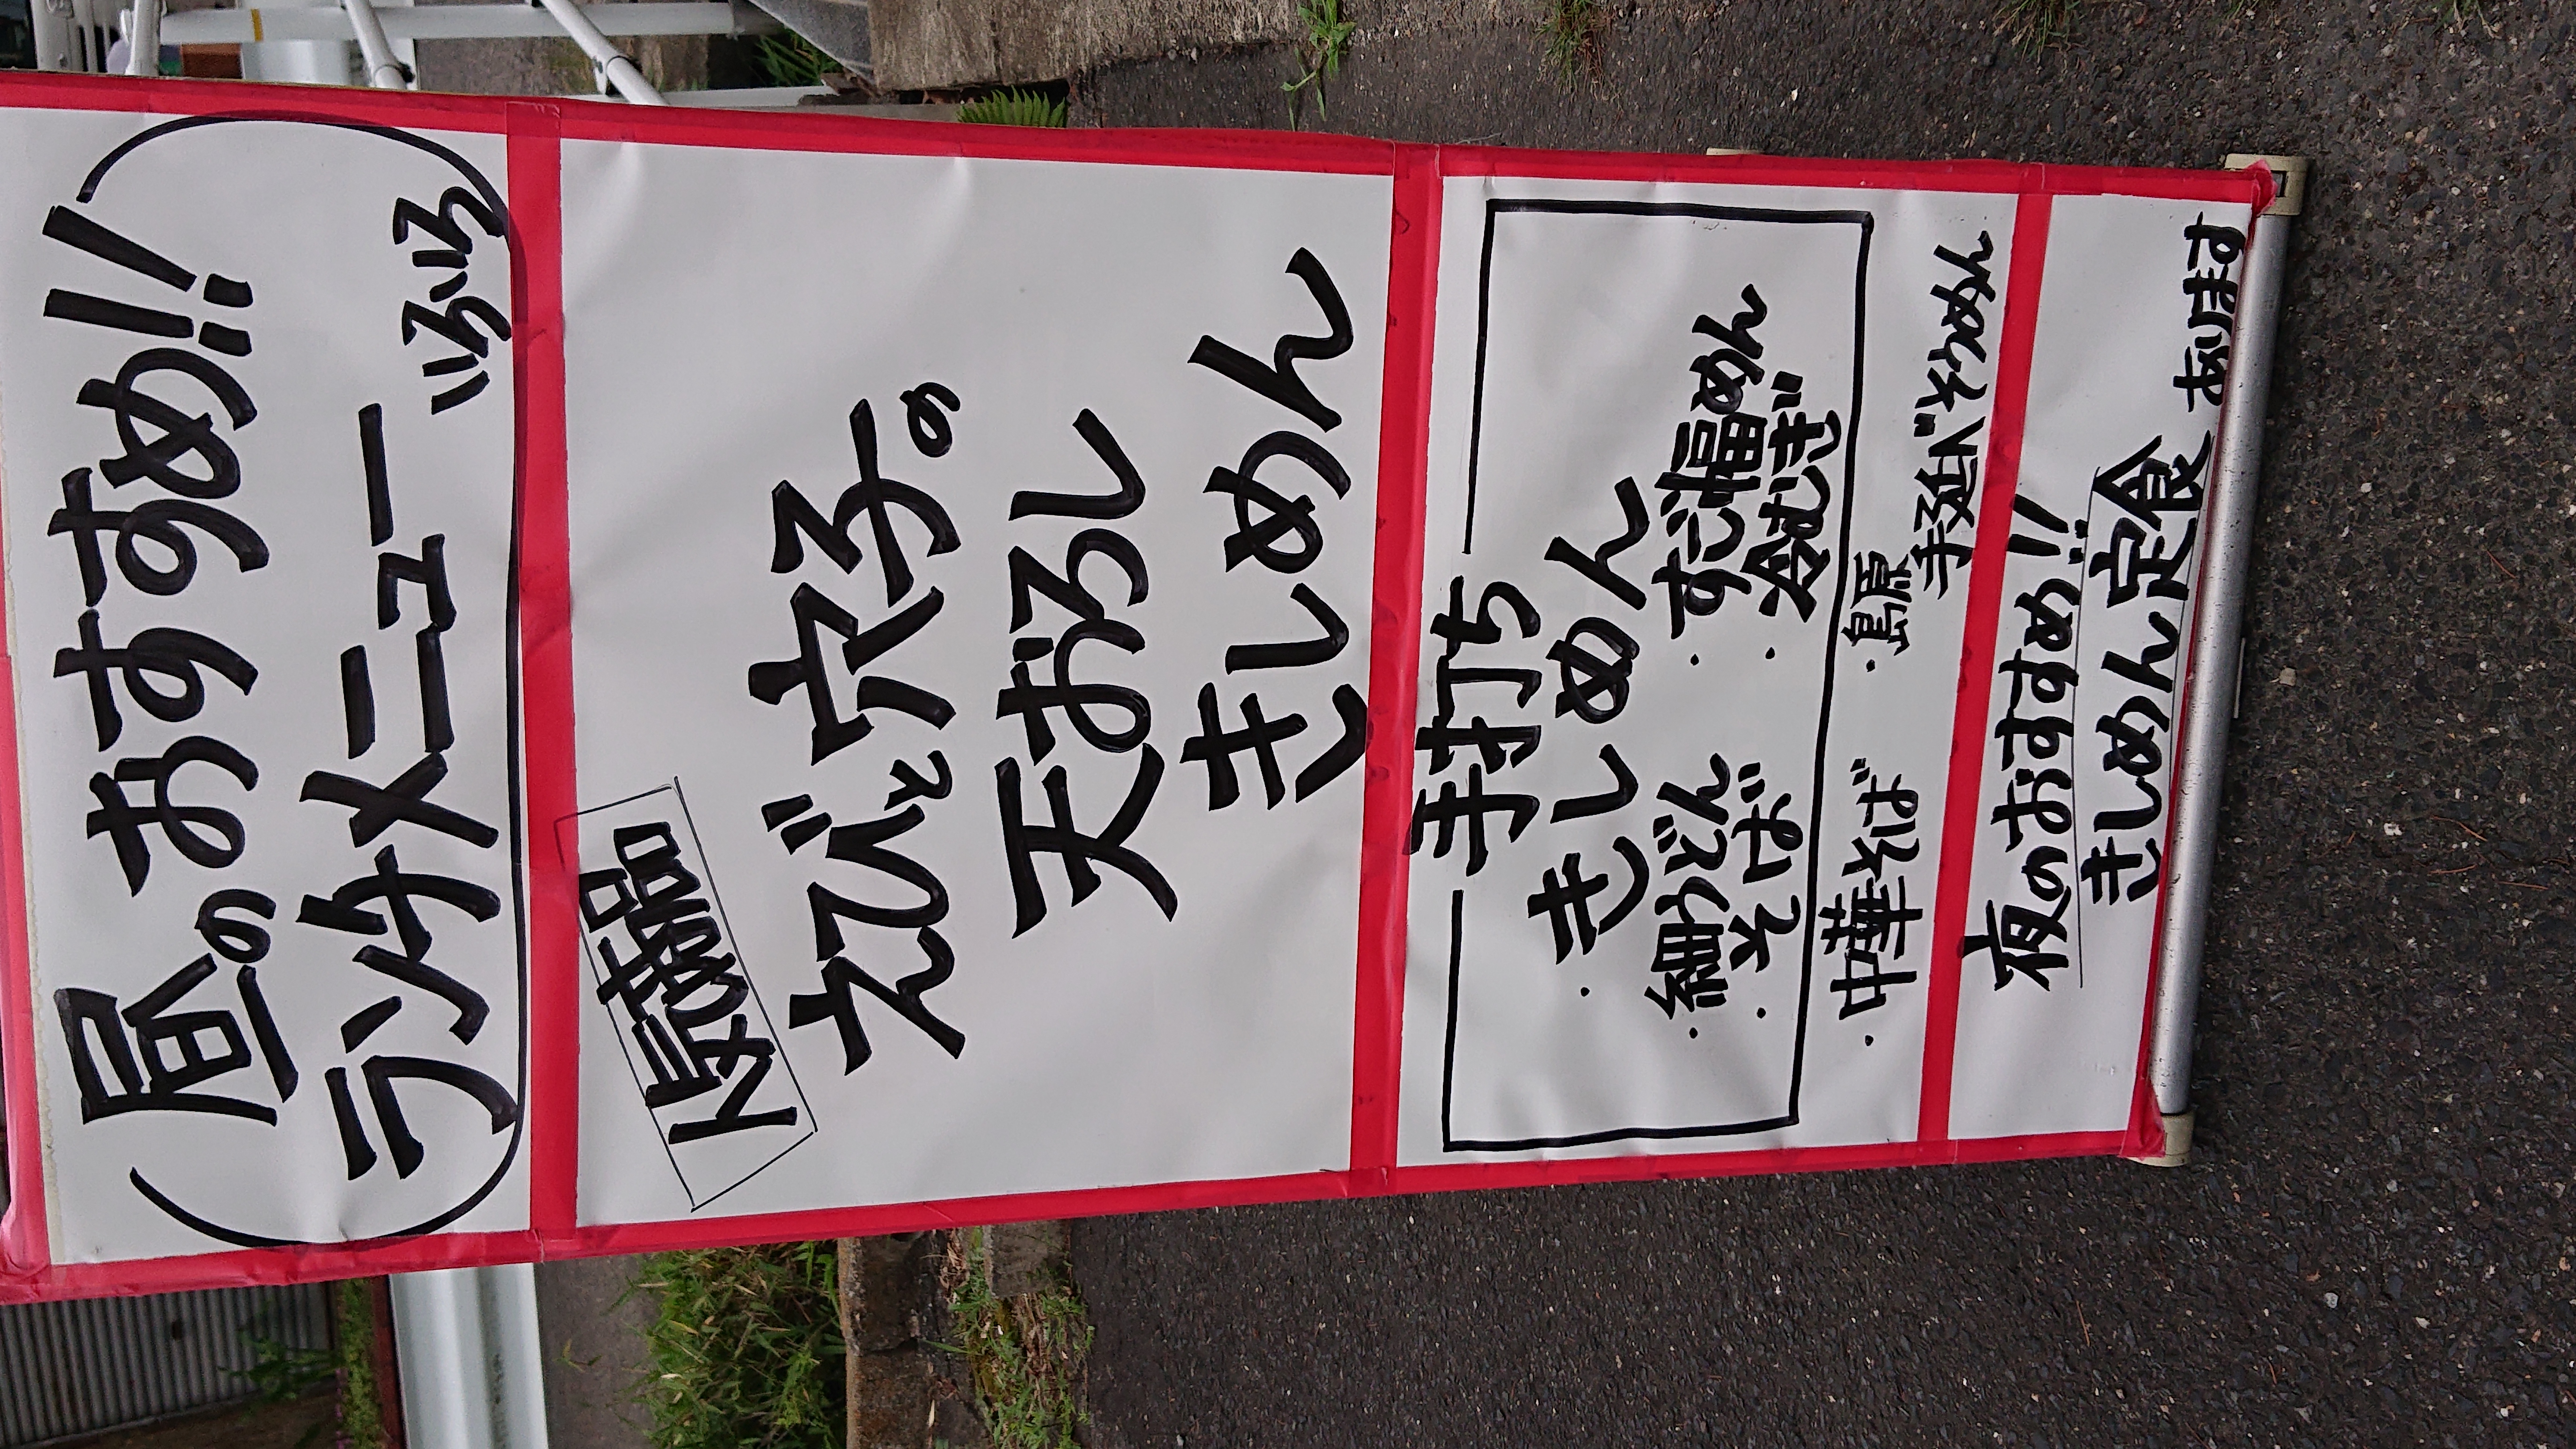 昼のおすすめ!!
ランチメニュー
いろいろ
えびと穴子の
天おろし
きしめん
手打ち
・きしめん
・細うどん ・すご幅めん
・そば ・冷むぎ
・中華そば ・島原
手延べそうめん
夜のおすすめ!!
きしめん定食
あります